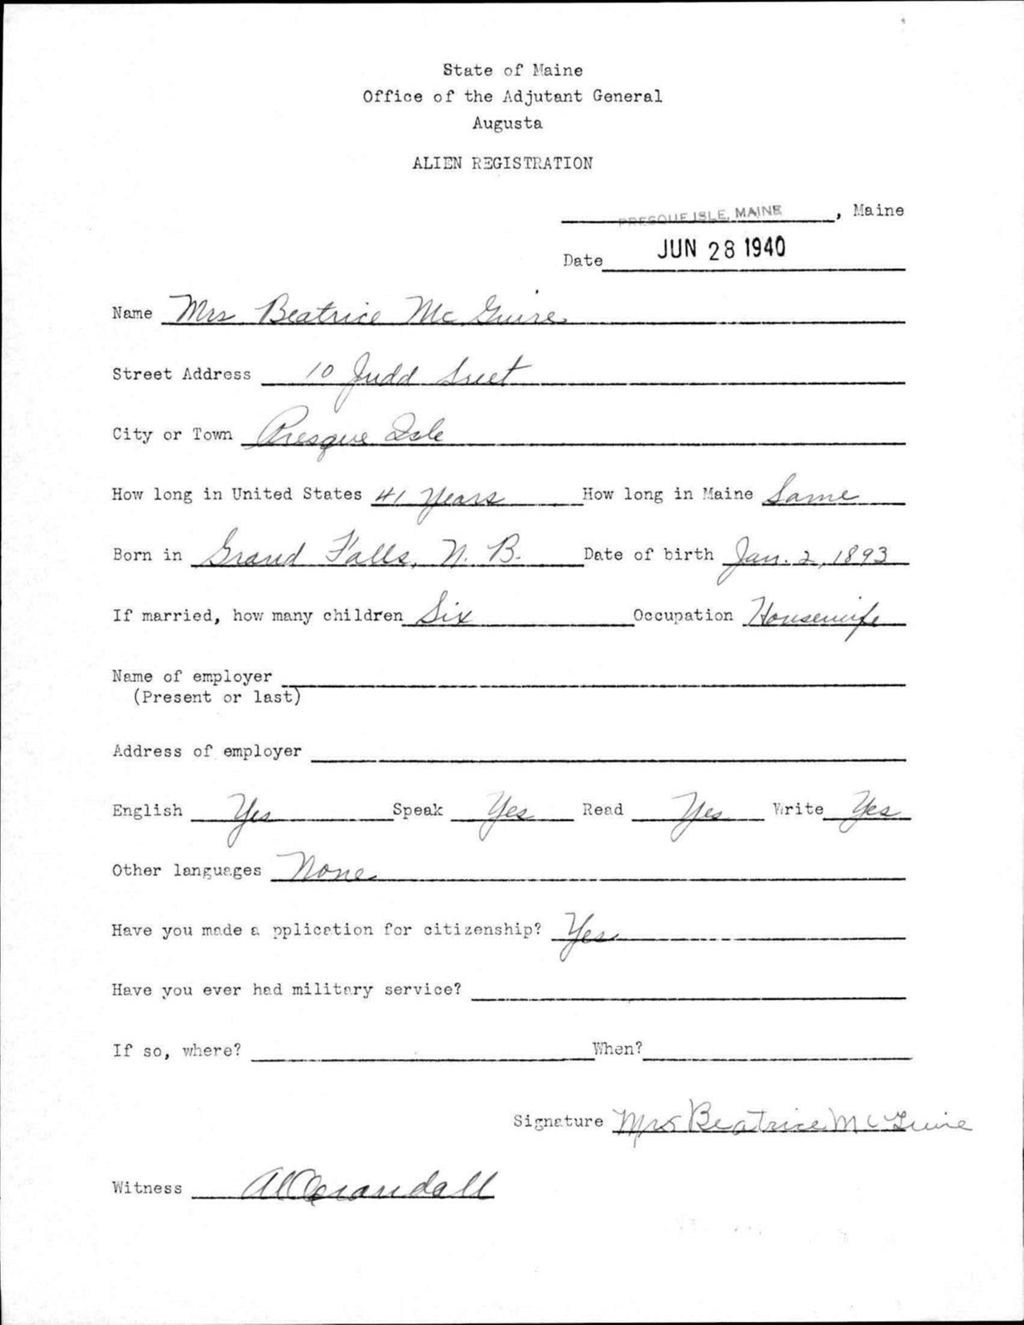 State of Maine
Office of the Adjutant General
Augusta
ALIEN REGISTRATION
PRESQUE ISLE, MAINE, Maine
Date JUN 28 1940
Name Mrs Beatrice McGuire
Street Address 10 Judd Sreet
City or Town Presque Isle
How long in United States 41 Years How long in Maine Same
Born in Grand Falls, N. B. Date of birth Jan. 2, 1893
If married, how many children Six Occupation Housewife
Name of employer
(Present or last)
Address of employer
English Yes Speak Yes Read Yes Write Yes
Other languages None
Have you made a pplication for citizenship? Yes
Have you ever had military service?
If so, where? When?
Signature Mrs Beatrice McGuire
Witness Crandall